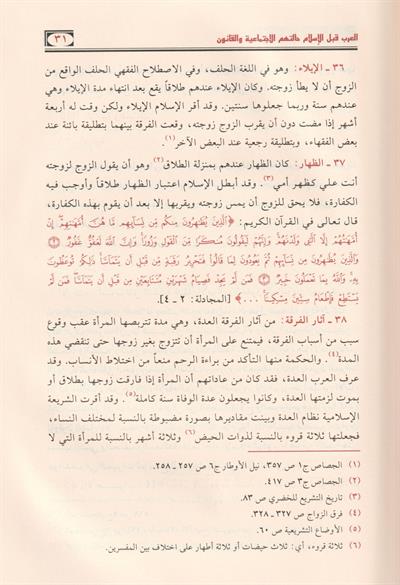 العرب قبل الإسلام حالتهم الاجتماعية والقانون
٣١
٣٦ ـ الإيلاء: وهو في اللغة الحلف، وفي الاصطلاح الفقهي الحلف الواقع من
الزوج أن لا يطأ زوجته. وكان الإيلاء عندهم طلاقاً يقع بعد انتهاء مدة الإيلاء وهي
عندهم سنة وربما جعلوها سنتين. وقد أقر الإسلام الإيلاء ولكن وقت له أربعة
أشهر إذا مضت دون أن يقرب الزوج زوجته، وقعت الفرقة بينهما بتطليقة بائنة عند
بعض الفقهاء، وبتطليقة رجعية عند البعض الآخر(١).
٣٧ ـ الظهار: كان الظهار عندهم بمنزلة الطلاق(٢) وهو أن يقول الزوج لزوجته
أنت علي كظهر أمي(٣). وقد أبطل الإسلام اعتبار الظهار طلاقاً وأوجب فيه
الكفارة، فلا يحق للزوج أن يمس زوجته ويقربها إلا بعد أن يقوم بهذه الكفارة،
قال تعالى في القرآن الكريم: ﴿الَّذِينَ يُظَاهِرُونَ مِنكُم مِّن نِّسَائِهِم مَّا هُنَّ أُمَّهَاتِهِمْ إِنْ
أُمَّهَاتُهُمْ إِلَّا اللَّائِي وَلَدْنَهُمْ وَإِنَّهُمْ لَيَقُولُونَ مُنكَرًا مِّنَ الْقَوْلِ وَزُورًا وَإِنَّ اللَّهَ لَعَفُوٌّ غَفُورٌ ۝٢
وَالَّذِينَ يُظَاهِرُونَ مِن نِّسَائِهِمْ ثُمَّ يَعُودُونَ لِمَا قَالُوا فَتَحْرِيرُ رَقَبَةٍ مِّن قَبْلِ أَن يَتَمَاسَّا ذَلِكُمْ تُوعَظُونَ
بِهِ وَاللَّهُ بِمَا تَعْمَلُونَ خَبِيرٌ ۝٣ فَمَن لَّمْ يَجِدْ فَصِيَامُ شَهْرَيْنِ مُتَتَابِعَيْنِ مِن قَبْلِ أَن يَتَمَاسَّا فَمَن لَّمْ
يَسْتَطِعْ فَإِطْعَامُ سِتِّينَ مِسْكِينًا ...﴾ [المجادلة: ٢ ـ ٤].
٣٨ ـ آثار الفرقة: من آثار الفرقة العدة، وهي مدة تتربصها المرأة عقب وقوع
سبب من أسباب الفرقة، فيمتنع على المرأة أن تتزوج بغير زوجها حتى تنقضي هذه
المدة(٤). والحكمة منها التأكد من براءة الرحم منعاً من اختلاط الأنساب. وقد
عرف العرب العدة، فقد كان من عاداتهم أن المرأة إذا فارقت زوجها بطلاق أو
بموت لزمتها العدة، وكانوا يجعلون عدة الوفاة سنة كاملة(٥). وقد أقرت الشريعة
الإسلامية نظام العدة وبينت مقاديرها بصورة مضبوطة بالنسبة لمختلف النساء،
فجعلتها ثلاثة قروء بالنسبة لذوات الحيض(٦) وثلاثة أشهر بالنسبة للمرأة التي لا
(١) الجصاص ج١ ص ٣٥٧، نيل الأوطار ج٦ ص ٢٥٧ ـ ٢٥٨.
(٢) الجصاص ج٣ ص ٤١٧.
(٣) تاريخ التشريع للخضري ص ٨٣.
(٤) فرق الزواج ص ٣٢٧ ـ ٣٢٨.
(٥) الأوضاع التشريعية ص ٦٠.
(٦) ثلاثة قروء، أي: ثلاث حيضات أو ثلاثة أطهار على اختلاف بين المفسرين.